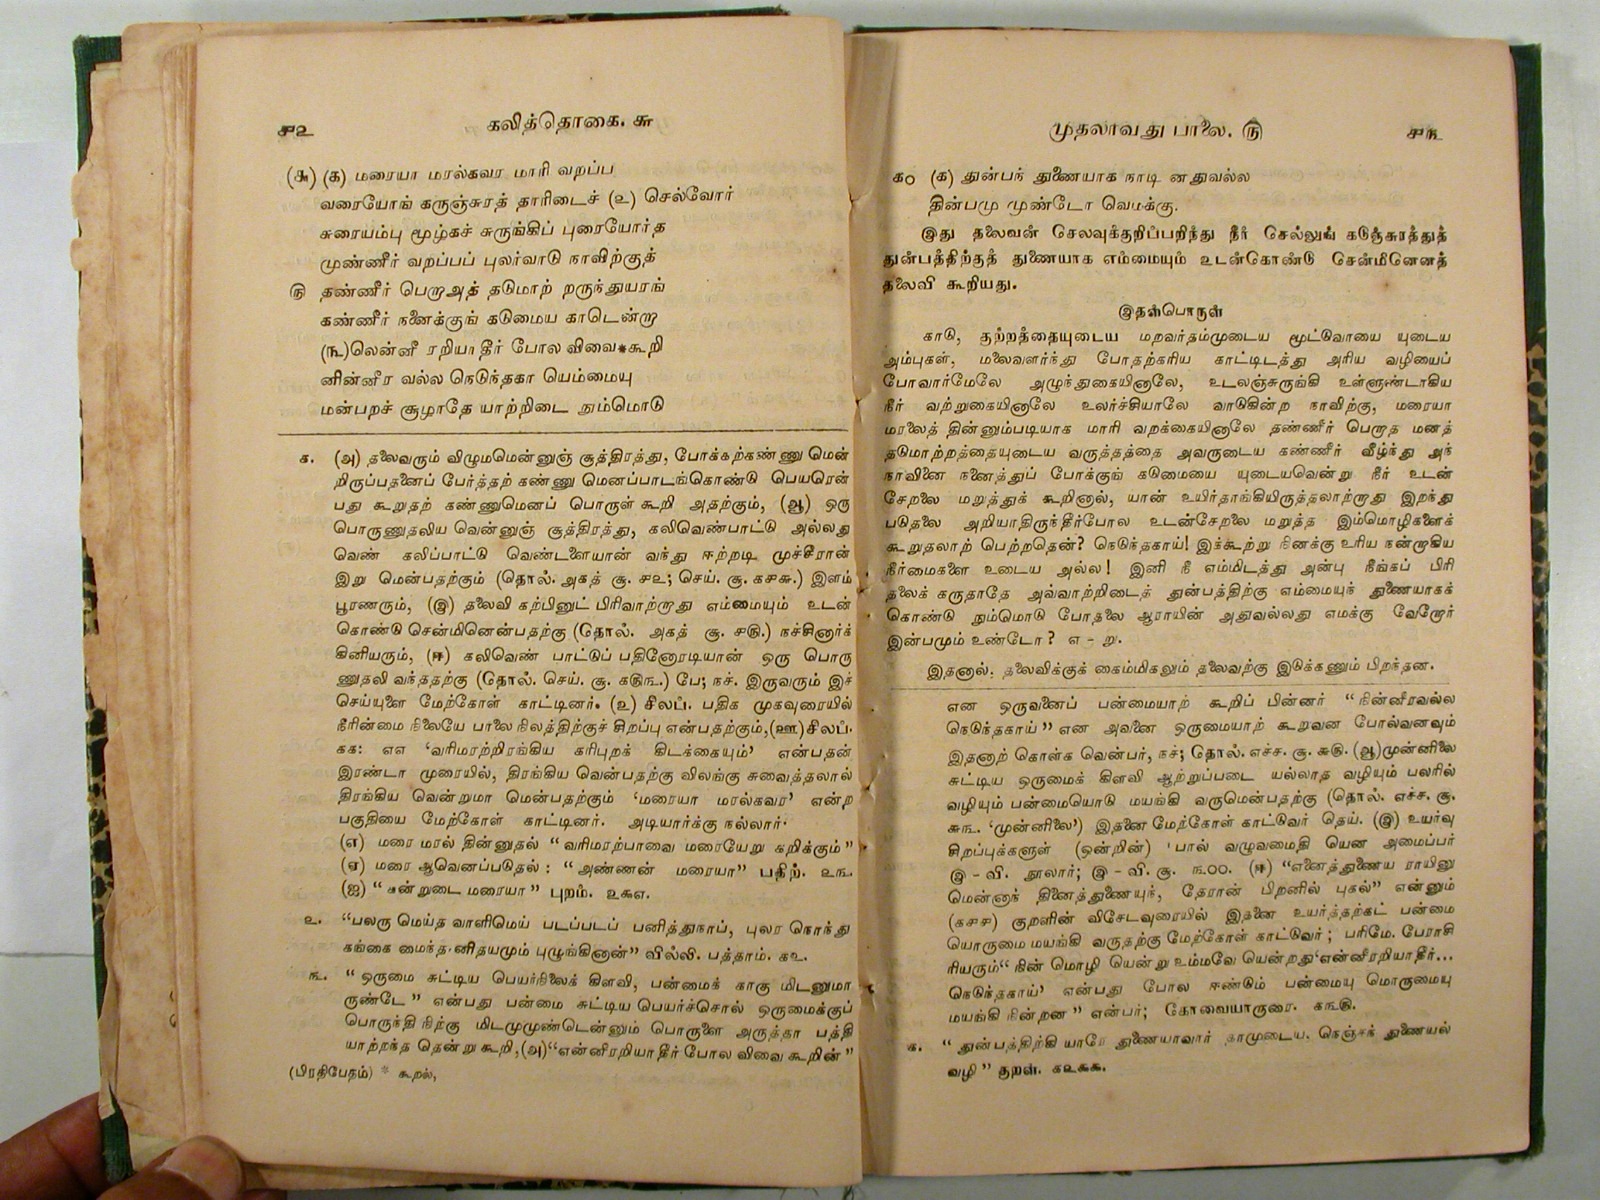 ௪௨ கலித்தொகை. ௬
(௬) (க) மரையா மரல்கவர மாரி வறப்ப
வரையோங் கருஞ்சுரத் தாரிடைச் (௨) செல்வோர்
சுரையம்பு மூழ்கச் சுருங்கிப் புரையோர்த
முண்ணீர் வறப்பப் புலர்வாடு நாவிற்குத்
௫ தண்ணீர் பெறாஅத் தடுமாற் றருந்துயரங்
கண்ணீர் நனைக்குங் கடுமைய காடென்றா
(௩)லென்னீ ரறியாதீர் போல விவை*கூறி
னின்னீர வல்ல நெடுந்தகா யெம்மையு
மன்பறச் சூழாதே யாற்றிடை நும்மொடு
க. (அ) தலைவரும் விழுமமென்னுஞ் சூத்திரத்து, போக்கற்கண்ணு மென்
றிருப்பதனைப் பேர்த்தற் கண்ணு மெனப்பாடங்கொண்டு பெயரென்
பது கூறுதற் கண்ணுமெனப் பொருள் கூறி அதற்கும், (ஆ) ஒரு
பொருணுதலிய வென்னுஞ் சூத்திரத்து, கலிவெண்பாட்டு அல்லது
வெண் கலிப்பாட்டு வெண்டளையான் வந்து ஈற்றடி முச்சீரான்
இறு மென்பதற்கும் (தொல். அகத் சூ. ௪௨; செய். சூ. க௪௬.) இளம்
பூரணரும், (இ) தலைவி கற்பினுட் பிரிவாற்றாது எம்மையும் உடன்
கொண்டு சென்மினென்பதற்கு (தொல். அகத் சூ. ௪௫.) நச்சினார்க்
கினியரும், (ஈ) கலிவெண் பாட்டுப் பதினோரடியான் ஒரு பொரு
ணுதலி வந்ததற்கு (தொல். செய். சூ. க௫௩.) பே; நச். இருவரும் இச்
செய்யுளை மேற்கோள் காட்டினர். (உ) சிலப். பதிக முகவுரையில்
நீரின்மை நிலையே பாலை நிலத்திற்குச் சிறப்பு என்பதற்கும்,(ஊ)சிலப்.
கக: எஎ 'வரிமரற்றிரங்கிய கரிபுறக் கிடக்கையும்' என்பதன்
இரண்டா முரையில், திரங்கிய வென்பதற்கு விலங்கு சுவைத்தலால்
திரங்கிய வென்றுமா மென்பதற்கும் 'மரையா மரல்கவர' என்ற
பகுதியை மேற்கோள் காட்டினர். அடியார்க்கு நல்லார்.
(எ) மரை மரல் தின்னுதல் "வரிமரற்பாவை மரையேறு கறிக்கும்"
(ஏ) மரை ஆவெனப்படுதல் : "அண்ணன் மரையா" பதிற். ௨௩.
(ஐ) "கன்றுடை மரையா" புறம். ௨௬எ.
௨. "பலரு மெய்த வாளிமெய் படப்படப் பனித்துநாப், புலர நொந்து
கங்கை மைந்த.னிதயமும் புழுங்கினான்" வில்லி. பத்தாம். க௨.
௩. "ஒருமை சுட்டிய பெயர்நிலைக் கிளவி, பன்மைக் காகு மிடனுமா
ருண்டே" என்பது பன்மை சுட்டிய பெயர்ச்சொல் ஒருமைக்குப்
பொருந்தி நிற்கு மிடமுமுண்டென்னும் பொருளை அருத்தா பத்தி
யாற்றந்த தென்று கூறி,(அ)"என்னீரறியாதீர் போல விவை கூறின்"
(பிரதிபேதம்) * கூறல்,
முதலாவது பாலை. ௫ ௪௩
க௦ (க) துன்பந் துணையாக நாடி னதுவல்ல
தின்பமு முண்டோ வெமக்கு.
இது தலைவன் செலவுக்குறிப்பறிந்து நீர் செல்லுங் கடுஞ்சுரத்துத்
துன்பத்திற்குத் துணையாக எம்மையும் உடன்கொண்டு சென்மீனெனத்
தலைவி கூறியது.
இதன்பொருள்
காடு, குற்றத்தையுடைய மறவர்தம்முடைய மூட்டுவாயை யுடைய
அம்புகள், மலைவளர்ந்து போதற்கரிய காட்டிடத்து அரிய வழியைப்
போவார்மேலே அழுந்துகையினாலே, உடலஞ்சுருங்கி உள்ளுண்டாகிய
நீர் வற்றுகையினாலே உலர்ச்சியாலே வாடுகின்ற நாவிற்கு, மரையா
மரலைத் தின்னும்படியாக மாரி வறக்கையினாலே தண்ணீர் பெறாத மனத்
தடுமாற்றத்தையுடைய வருத்தத்தை அவருடைய கண்ணீர் வீழ்ந்து அந்
நாவினை நனைத்துப் போக்குங் கடுமையை யுடையவென்று நீர் உடன்
சேறலை மறுத்துக் கூறினால், யான் உயிர்தாங்கியிருத்தலாற்றாது இறந்து
படுதலை அறியாதிருந்தீர்போல உடன்சேறலை மறுத்த இம்மொழிகளைக்
கூறுதலாற் பெற்றதென்? நெடுந்தகாய்! இக்கூற்று நினக்கு உரிய நன்றாகிய
நீர்மைகளை உடைய அல்ல! இனி நீ எம்மிடத்து அன்பு நீங்கப் பிரி
தலைக் கருதாதே அவ்வாற்றிடைத் துன்பத்திற்கு எம்மையுந் துணையாகக்
கொண்டு நும்மொடு போதலை ஆராயின் அதுவல்லது எமக்கு வேறோர்
இன்பமும் உண்டோ? எ - று.
இதனால், தலைவிக்குக் கைம்மிகலும் தலைவற்கு இடுக்கணும் பிறந்தன.
என ஒருவனைப் பன்மையாற் கூறிப் பின்னர் "நின்னீரவல்ல
நெடுந்தகாய்" என அவனை ஒருமையாற் கூறுவன போல்வனவும்
இதனாற் கொள்க வென்பர், நச்; தொல். எச்ச. சூ. ௬௫. (ஆ)முன்னிலை
சுட்டிய ஒருமைக் கிளவி ஆற்றுப்படை யல்லாத வழியும் பலரில்
வழியும் பன்மையொடு மயங்கி வருமென்பதற்கு (தொல். எச்ச. சூ.
௬௩. 'முன்னிலை') இதனை மேற்கோள் காட்டுவர் தெய். (இ) உயர்வு
சிறப்புக்களுள் (ஒன்றின்) 'பால் வழுவமைதி யென அமைப்பர்
இ - வி. நூலார்; இ - வி. சூ. ௩௦௦. (ஈ) "எனைத்துணைய ராயினு
மென்னாந் தினைத்துணையுந், தேரான் பிறனில் புகல்" என்னும்
(க௪௪) குறளின் விசேடவுரையில் இதனை உயர்த்தற்கட் பன்மை
யொருமை மயங்கி வருதற்கு மேற்கோள் காட்டுவர் ; பரிமே. பேராசி
ரியரும் "நின் மொழி யென்று உம்மவே யென்றது 'என்னீரறியாதீர்...
நெடுந்தகாய்' என்பது போல ஈண்டும் பன்மையு மொருமையு
மயங்கி நின்றன" என்பர்; கோவையாருரை. க௩௫.
க. "துன்பத்திற்கி யாரே துணையாவார் தாமுடைய. நெஞ்சந் துணையல்
வழி" குறள். க௨௬௬.